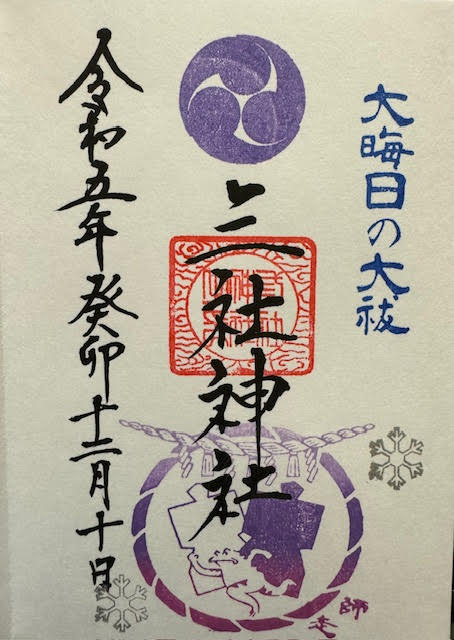 大晦日の大祓
三社神社
令和五年癸卯十二月十日
師走